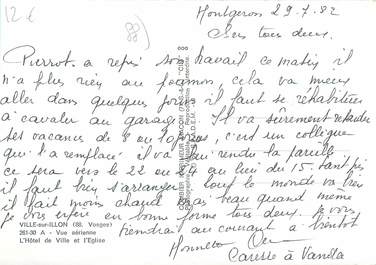 12 €
(88)
Montgeron 29.7.82
tous deux.
Pierrot a repris son travail ce matin il
n'a plus rien au poumon, cela va mieux
aller dans quelques jours il faut se réhabituer
à cavaler au garage. Il va sûrement retarder
ses vacances de jours, c'est un collègue
qui l'a remplacé il va lui rendre la pareille
ce sera vers le 22 ou 24 au lieu du 15. tant pis
il faut bien s'arranger tout le monde va bien
il fait moins chaud mais beau quand meme
je vous espère en bonne forme tous deux. je vous
tiendrai au courant à bientôt
VILLE-sur-ILLON (88. Vosges)
261-30 A - Vue aérienne
L'Hôtel de Ville et l'Eglise
Caresse à